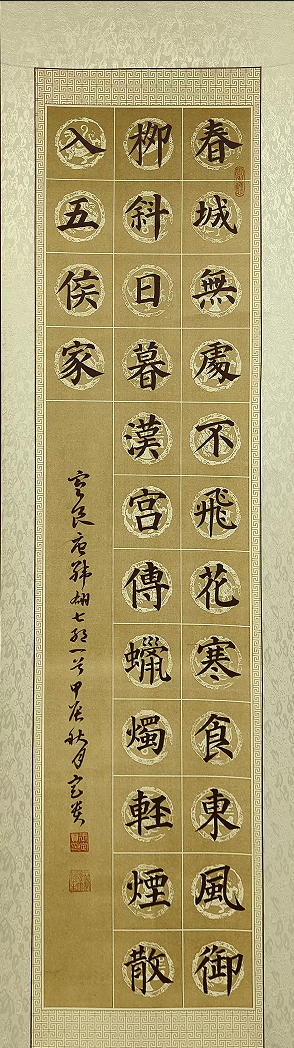 春城無處不飛花寒食東風御
柳斜日暮漢宮傳蠟燭輕煙散
入五侯家
唐韓翃七絕一首甲辰秋月